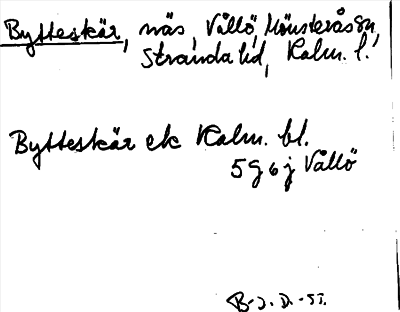 Bytteskär, näs, Vållö, Mönsterås sn,
Stranda hd, Kalm. l.
Bytteskär ek Kalm. bl.
5 G 6 j Vållö
B-J. D. -57.